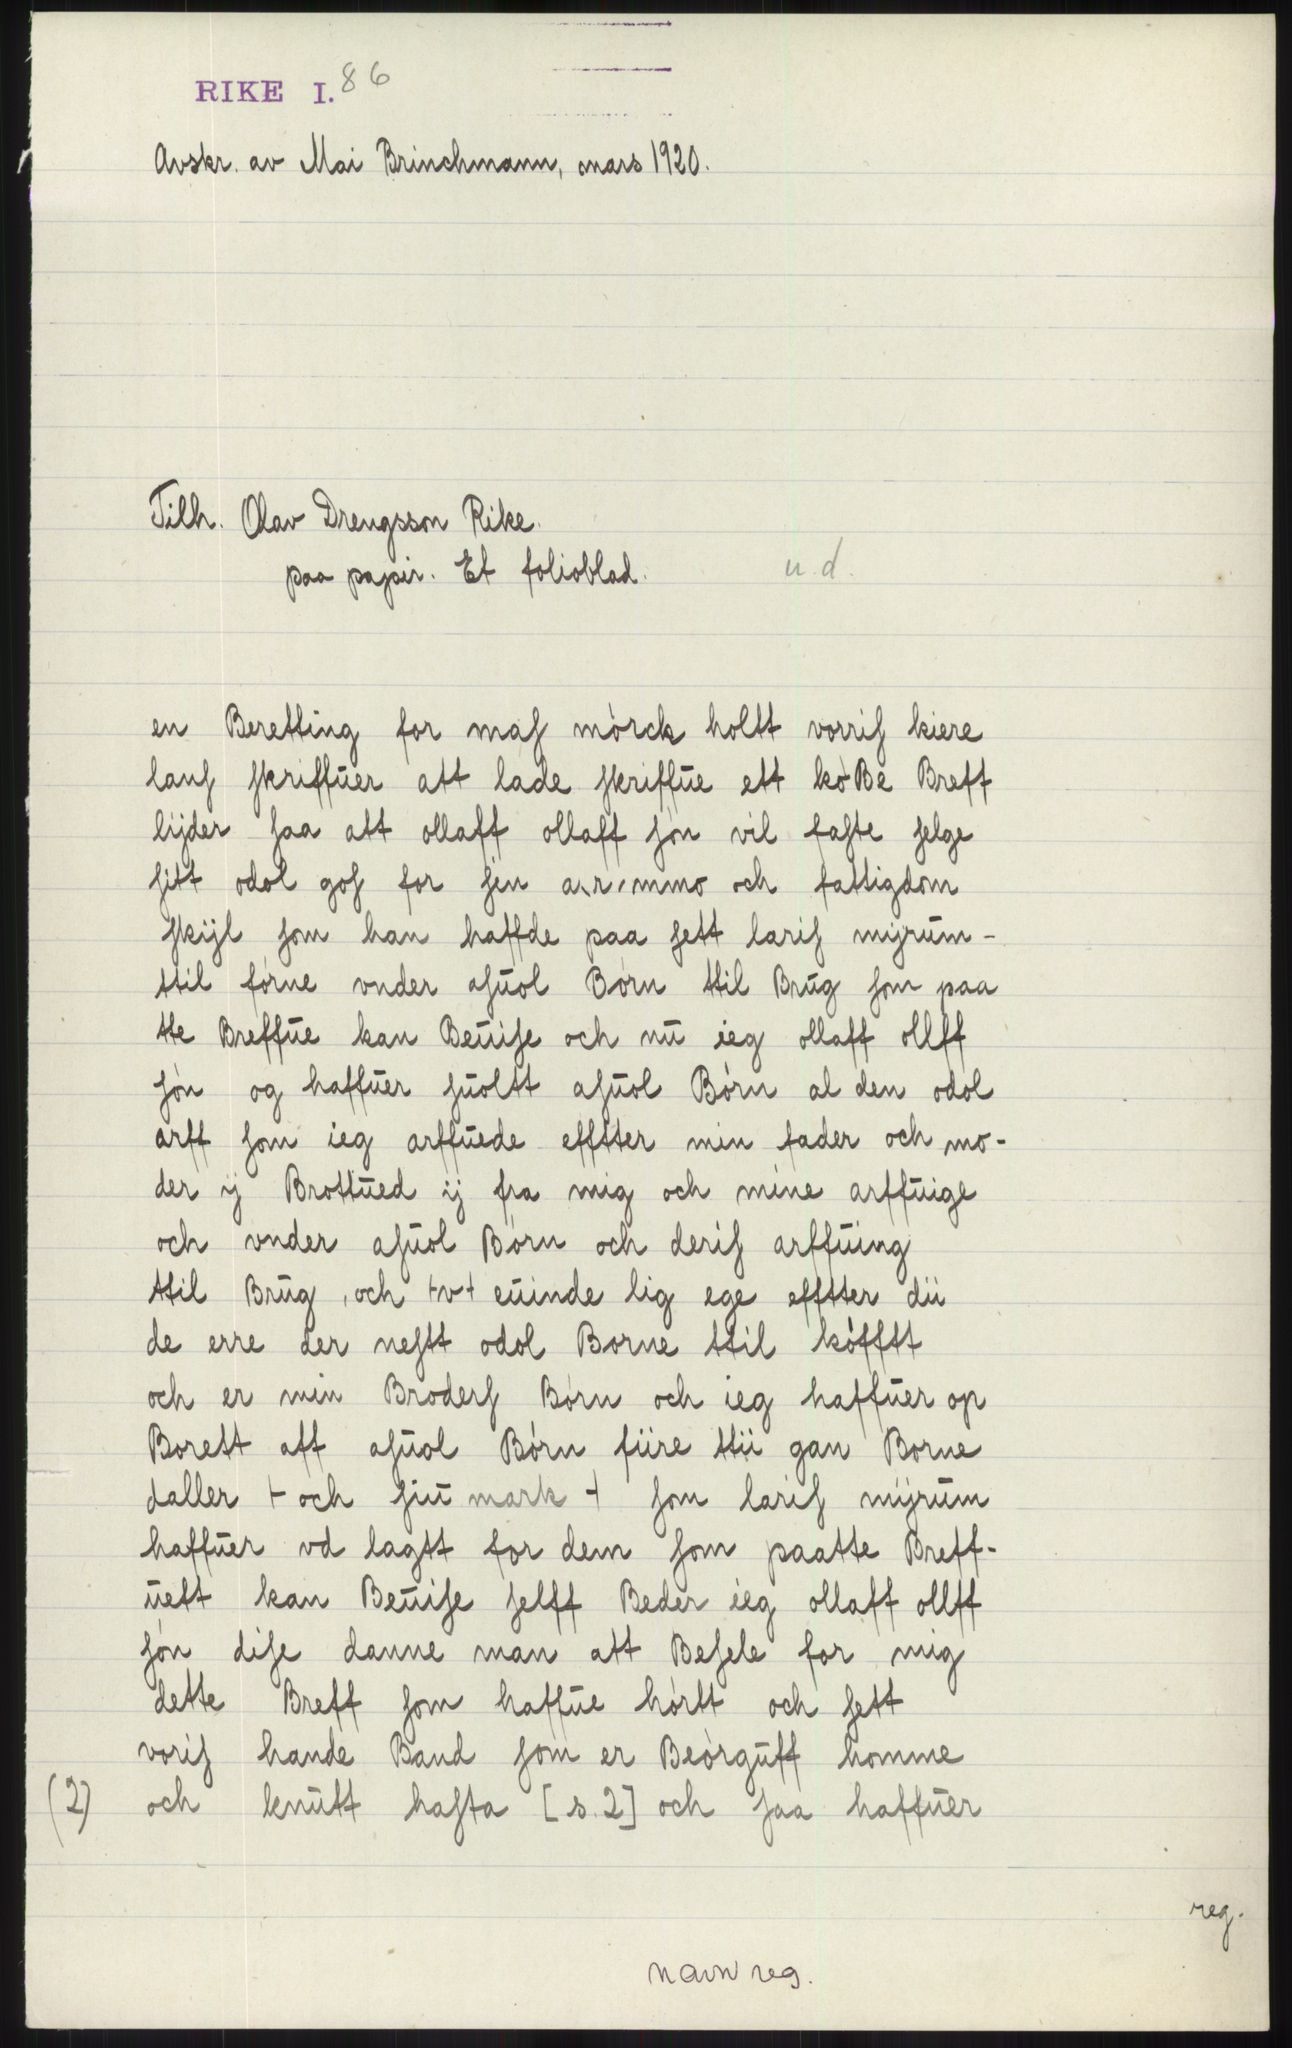 RIKE I. 86
Avskr. av Mai Brinchmann, mars 1920.
Tilh. Olav Drengsson Rike.
paa papir. Et folioblad. u. d.
en Beretting for maſ mòrck holtt vorriſ kiere
lanſ ſkriffŭer att lade ſkriffŭe ett kòBe Breff
lijder ſaa att ollaff ollaff ſòn vil faſte ſelge
ſitt odol goſ for ſen a,r,mmo och fattigdom
ſkijl ſom han haffde paa ſett lariſ mijrŭm-
ttil fòrne vnder aſŭol Bòrn ttil Brŭg ſom paa
tte Breffŭe kan Beŭiſe och nŭ ieg ollaff ollff
ſòn og haffŭer ſŭoltt aſŭol Bòrn al den odol
arff ſom ieg arffŭede efftter min fader och mo-
der ij Brottŭed ij fra mig och mine arffŭige
och vnder aſŭol Bòrn och deriſ arffŭing
ttil Brŭg, och +v+ eŭinde lig ege efftter dii
de erre der neſtt odol Borne ttil kòfftt
och er min Broderſ Bòrn och ieg haffŭer op
Borett aff aſŭol Bòrn fiire ttii gan Borne
daller + och ſiŭ mark + ſom lariſ mijrŭm
haffŭer vd lagtt for dem ſom paatte Breff-
ŭett kan Beŭiſe ſelff Beder ieg ollaff ollff
ſòn diſe danne man att Beſele for mig
dette Breff ſom haffŭe hòrtt och ſett
voriſ hande Band ſom er Beòrgŭff homme
(2) och knŭtt haſta [s. 2] och ſaa haffŭer
reg.
navn reg.